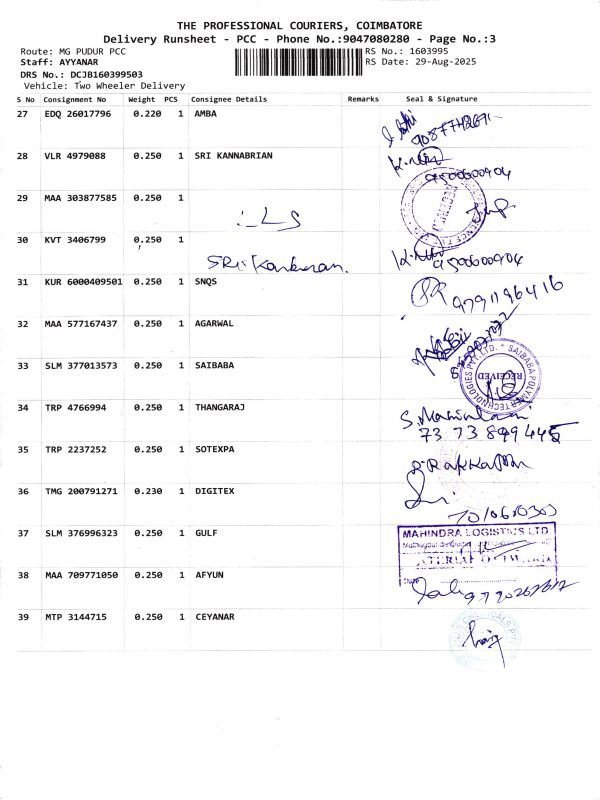 THE PROFESSIONAL COURIERS, COIMBATORE
Delivery Runsheet - PCC - Phone No.:9047080280 - Page No.:3
Route: MG PUDUR PCC RS No.: 1603995
Staff: AYYANAR RS Date: 29-Aug-2025
DRS No.: DCJB160399503
Vehicle: Two Wheeler Delivery
S No Consignment No Weight PCS Consignee Details Remarks Seal & Signature
27 EDQ 26017796 0.220 1 AMBA
28 VLR 4979088 0.250 1 SRI KANNABRIAN
9500600904
29 MAA 303877585 0.250 1
ILS
30 KVT 3406799 0.250 1
Sri Kankaran. 9500600904
31 KUR 6000409501 0.250 1 SNQS
9791196416
32 MAA 577167437 0.250 1 AGARWAL
33 SLM 377013573 0.250 1 SAIBABA
SAIBABA POLYMER TECHNOLOGIES PVT. LTD.
RECEIVED
34 TRP 4766994 0.250 1 THANGARAJ
73 73 899 445
35 TRP 2237252 0.250 1 SOTEXPA
36 TMG 200791271 0.230 1 DIGITEX
37 SLM 376996323 0.250 1 GULF
MAHINDRA LOGISTICS LTD
38 MAA 709771050 0.250 1 AFYUN
39 MTP 3144715 0.250 1 CEYANAR